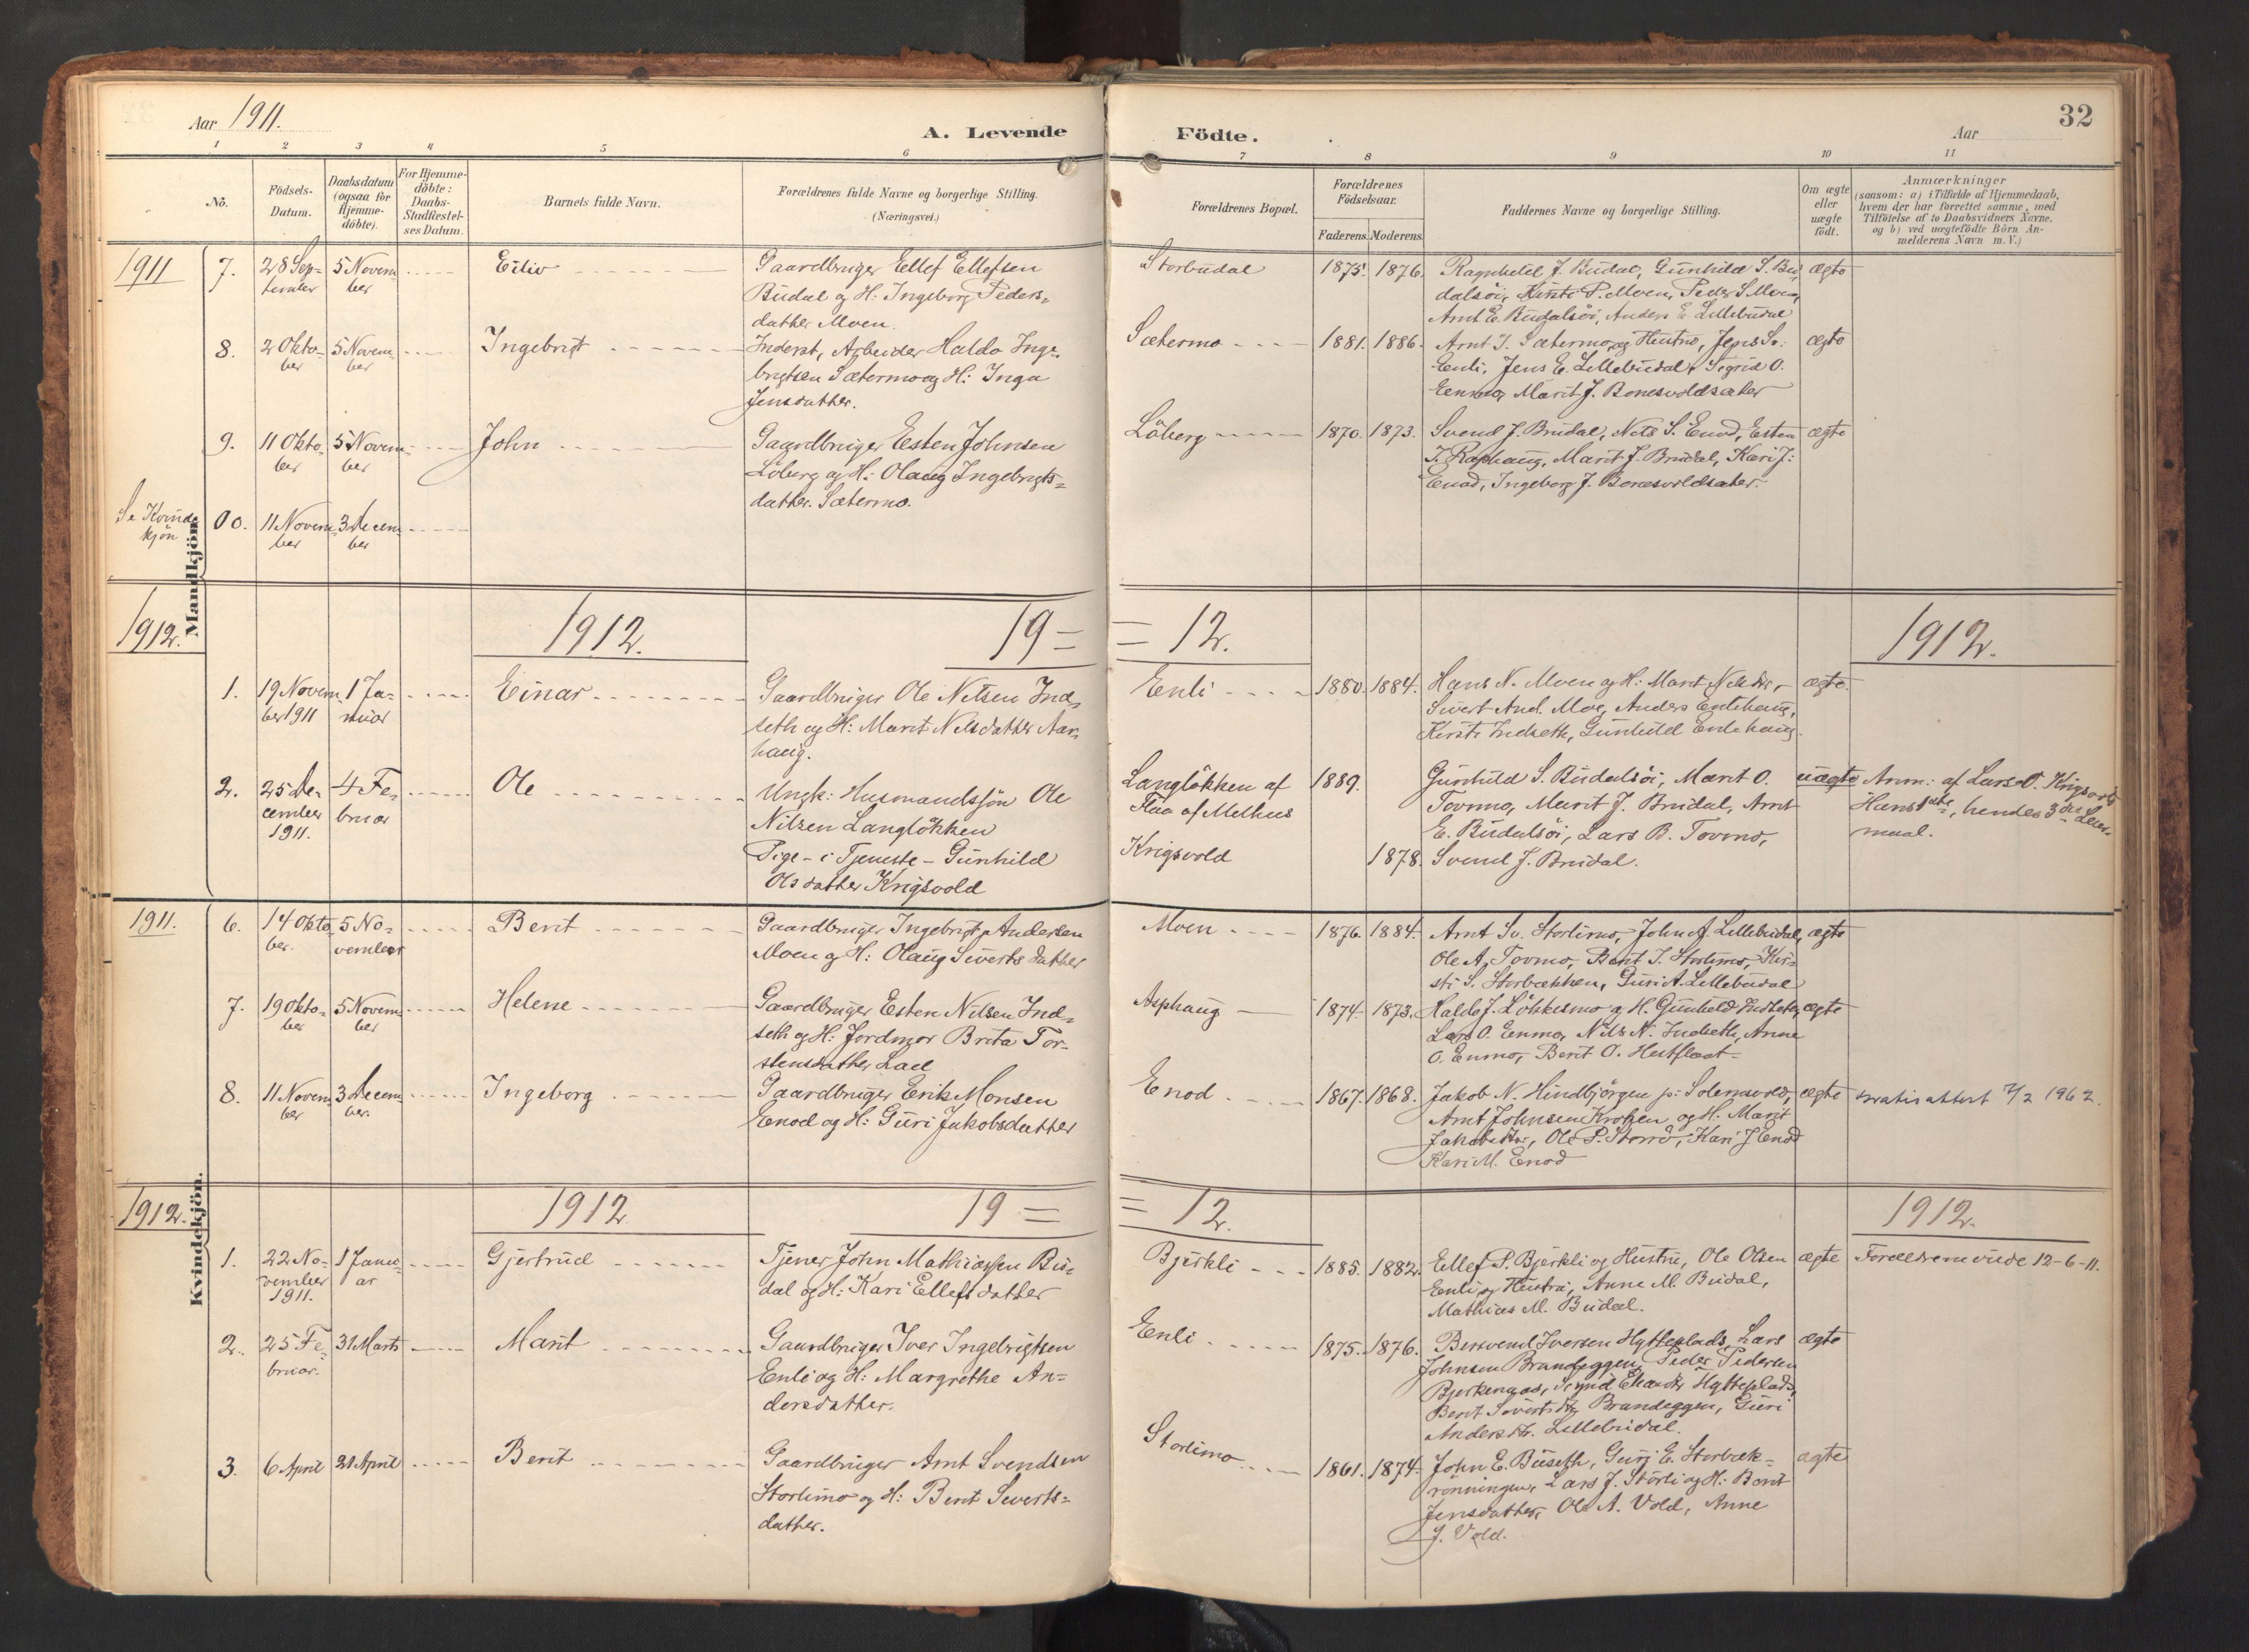 Aar 1911.
A. Levende
Födte.
Aar
32
1 2 3 4 5 6 7 8 9 10 11
No.
Födsels-
Datum.
Daabsdatum
(ogsaa for
Hjemme-
döbte).
For Hjemme-
döbte:
Daabs-
Stadfæstel-
ses Datum.
Barnets fulde Navn.
Forældrenes fulde Navne og borgerlige Stilling.
(Næringsvei.)
Forældrenes Bopæl.
Forældrenes
Födselsaar.
Faderens. Moderens.
Faddernes Navne og borgerlige Stilling.
Om ægte
eller
uægte
födt.
Anmærkninger
(saasom: a) i Tilfælde af Hjemmedaab,
hvem der har forrettet samme, med
Tilföielse af to Daabsvidners Navne,
og b) ved uægtefödte Börn An-
melderens Navn m. V.)
Mandkjön.
1911 7. 28 Sep-
tember
5 Novem-
ber
Eiliv
Gaardbruger Ellef Ellefsen
Budal og H: Ingeborg Peders-
datter Moen.
Storbudal
1875. 1876.
Ragnhild J. Budal, Gunhild S. Bu-
dalsöi, Kirsti P. Moen, Peder S. Moen,
Arnt E. Budalsöi, Anders E. Lillebudal
ægte
8. 2 Okto-
ber
5 Novem-
ber
Ingebrigt
Inderst, Arbeider Haldo Inge-
brigtsen Sætermo og H: Inga
Jensdatter.
Sætermo
1881. 1886.
Arnt I. Sætermo og Hustru, Jens Sv:
Enli, Jens E. Lillebudal, Sigrid O.
Enmo, Marit J. Bonesvoldsæter
ægte
9. 11 Okto-
ber
5 Novem-
ber
John
Gaardbruger Esten Johnsen
Löberg og H: Olaug Ingebrigts-
datter Sætermo.
Löberg
1870. 1873.
Svend J. Brudal, Nils S. Enod, Esten
J. Raphaug, Marit J. Brudal, Kari J:
Enod, Ingeborg J. Bonesvoldsæter.
ægte
Se Kvinde
kjön
00. 11 Novem-
ber
3 Decem-
ber
1912.
1912.
19=
=12.
1912.
1. 19 Novem-
ber 1911
1 Ja-
nuar
Einar
Gaardbruger Ole Nilsen Ind-
seth og H: Marit Nilsdatter Aar-
haug.
Enli
1880. 1884.
Hans N. Moen og H: Marit Nilsdtr,
Sivert And. Moe, Anders Enlihaug,
Kirsti Indseth, Gunhild Enlihaug.
ægte.
2. 25 De-
cember
1911.
4 Fe-
bruar
Ole
Ungk: Husmandssön Ole
Nilsen Langlökken
Pige - i Tjeneste - Gunhild
Olsdatter Krigsvold
Langlökken af
Flaa af Melhus
Krigsvold
1889.
1878.
Gunhild S. Budalsöi, Marit O.
Tovmo, Marit J. Brudal, Arnt
E. Budalsöi, Lars B. Tovmo,
Svend J. Brudal.
uægte
Anm: af Lars O. Krigsvold
Hans 1ste, hendes 3die Leier-
maal.
Kvindekjön.
1911. 6. 14 Okto-
ber.
5 No-
vember
Berit
Gaardbruger Ingebrigt Andersen
Moen og H: Olaug Siverts datter
Moen
1876. 1884.
Arnt Sv. Storlimo, John A. Lillebudal,
Ole A. Tovmo, Berit I. Storlimo, Kir-
sti S. Storbækken, Guri A. Lillebudal
ægte
7. 19 Okto-
ber
5 Novem-
ber
Helene
Gaardbruger Esten Nilsen Ind-
seth og H: Jordmor Brita Tor-
stensdatter Lad
Asphaug
1874. 1873.
Haldo J. Lökkesmo og H. Gunhild Indseth,
Lars O. Enmo, Nils N. Indseth, Anne
O. Enmo, Berit O. Hestflaat
ægte
8. 11 Novem-
ber
3 Decem-
ber.
Ingeborg
Gaardbruger Erik Monsen
Enod og H: Guri Jakobsdatter
Enod
1867. 1868.
Jakob N. Hindbjörgen p: Solemsvold,
Arnt Johnsen Kroken og H. Marit
Jakobsdtr, Ole P. Storrö, Kari J Enod
Kari M. Enod
ægte
gratisattest 7/2 1962.
1912.
1912
19=
=12.
1912.
1. 22 No-
vember
1911.
1 Janu-
ar
Gjertrud
Tjener John Mathiassen Bu-
dal og H: Kari Ellefsdatter
Bjerkli
1885. 1882.
Ellef P. Bjerkli og Hustru, Ole Olsen
Enli og Hustru, Anne M. Budal,
Mathias M. Budal.
ægte
Forældrene viede 12-6-11.
2. 25 Fe-
bruar.
31 Marts
Marit
Gaardbruger Iver Ingebrigtsen
Enli og H: Margrethe An-
dersdatter.
Enli
1875. 1876.
Bersvend Iversen Hytteplads, Lars
Johnsen Brandeggen, Peder Pedersen
Bjerkengas, Hytteplads,
Berit Sivertsdtr Brandeggen, Guri
Andersdtr. Lillebudal.
ægte
3. 6 April
21 April
Berit
Gaardbruger Arnt Svendsen
Storlimo og H: Berit Siverts-
datter.
Storlimo
1861. 1874.
John E. Buseth, Guri E. Storbæk-
rönningen, Lars J. Störli og H: Berit
Jensdatter, Ole A. Vold, Anne
J. Vold.
ægte